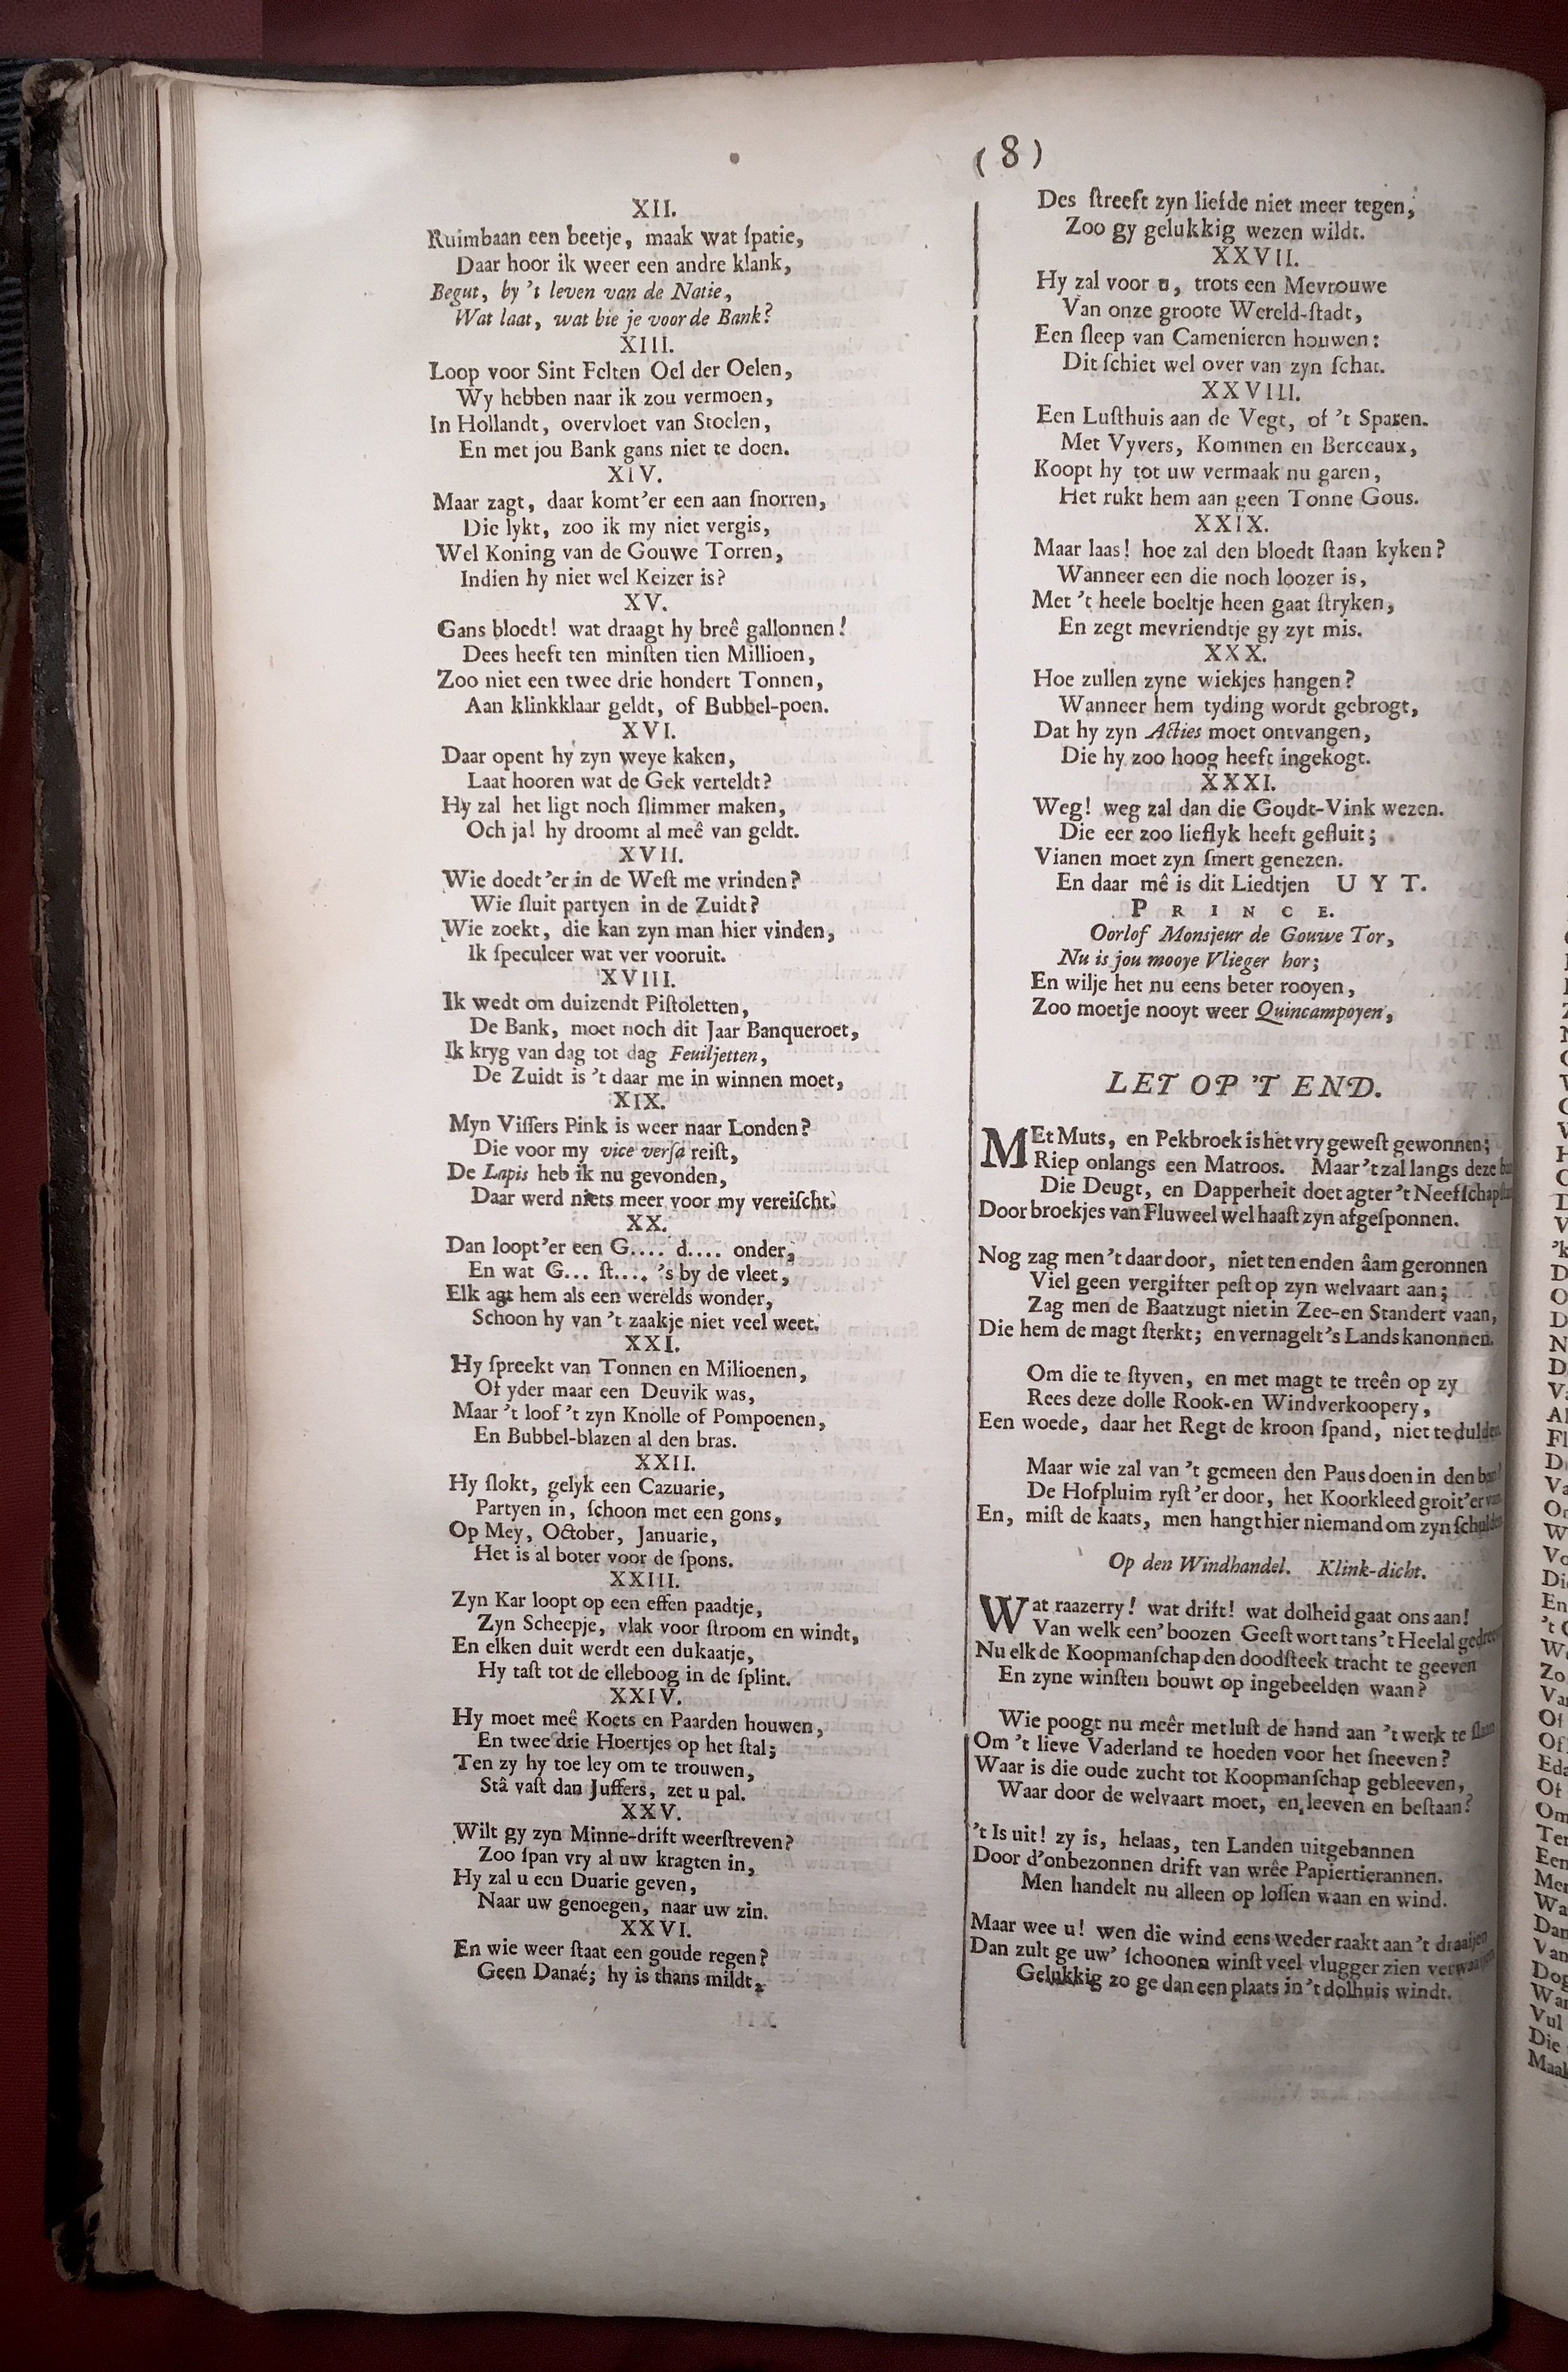 (8)
XII.
Ruimbaan een beetje, maak wat ſpatie,
Daar hoor ik weer een andre klank,
Begut, by 't leven van de Natie,
Wat laat, wat bie je voor de Bank?
XIII.
Loop voor Sint Felten Oel der Oelen,
Wy hebben naar ik zou vermoen,
In Hollandt, overvloet van Stoelen,
En met jou Bank gans niet te doen.
XIV.
Maar zagt, daar komt'er een aan ſnorren,
Die lykt, zoo ik my niet vergis,
Wel Koning van de Gouwe Torren,
Indien hy niet wel Keizer is?
XV.
Gans bloedt! wat draagt hy breê gallonnen!
Dees heeft ten minſten tien Millioen,
Zoo niet een twee drie hondert Tonnen,
Aan klinkklaar geldt, of Bubbel-poen.
XVI.
Daar opent hy zyn weye kaken,
Laat hooren wat de Gek verteldt?
Hy zal het ligt noch ſlimmer maken,
Och ja! hy droomt al meê van geldt.
XVII.
Wie doedt'er in de Weſt me vrinden?
Wie ſluit partyen in de Zuidt?
Wie zoekt, die kan zyn man hier vinden,
Ik ſpeculeer wat ver vooruit.
XVIII.
Ik wedt om duizendt Piſtoletten,
De Bank, moet noch dit Jaar Banqueroet,
Ik kryg van dag tot dag Feuiljetten,
De Zuidt is 't daar me in winnen moet,
XIX.
Myn Viſſers Pink is weer naar Londen?
Die voor my vice verſa reiſt,
De Lapis heb ik nu gevonden,
Daar werd niets meer voor my vereiſcht.
XX.
Dan loopt'er een G.... d.... onder,
En wat G... ſt.... 's by de vleet,
Elk agt hem als een werelds wonder,
Schoon hy van 't zaakje niet veel weet.
XXI.
Hy ſpreekt van Tonnen en Milioenen,
Of yder maar een Deuvik was,
Maar 't loof 't zyn Knolle of Pompoenen,
En Bubbel-blazen al den bras.
XXII.
Hy ſlokt, gelyk een Cazuarie,
Partyen in, ſchoon met een gons,
Op Mey, October, Januarie,
Het is al boter voor de ſpons.
XXIII.
Zyn Kar loopt op een effen paadtje,
Zyn Scheepje, vlak voor ſtroom en windt,
En elken duit werdt een dukaatje,
Hy taſt tot de elleboog in de ſplint.
XXIV.
Hy moet meê Koets en Paarden houwen,
En twee drie Hoertjes op het ſtal;
Ten zy hy toe ley om te trouwen,
Stâ vaſt dan Juffers, zet u pal.
XXV.
Wilt gy zyn Minne-drift weerſtreven?
Zoo ſpan vry al uw kragten in,
Hy zal u een Duarie geven,
Naar uw genoegen, naar uw zin.
XXVI.
En wie weer ſtaat een goude regen?
Geen Danaé; hy is thans mildt,
Des ſtreeft zyn liefde niet meer tegen,
Zoo gy gelukkig wezen wildt.
XXVII.
Hy zal voor u, trots een Mevrouwe
Van onze groote Wereld-ſtadt,
Een ſleep van Camenieren houwen:
Dit ſchiet wel over van zyn ſchat.
XXVIII.
Een Luſthuis aan de Vegt, of 't Sparen.
Met Vyvers, Kommen en Berceaux,
Koopt hy tot uw vermaak nu garen,
Het rukt hem aan geen Tonne Gous.
XXIX.
Maar laas! hoe zal den bloedt ſtaan kyken?
Wanneer een die noch loozer is,
Met 't heele boeltje heen gaat ſtryken,
En zegt mevriendtje gy zyt mis.
XXX.
Hoe zullen zyne wiekjes hangen?
Wanneer hem tyding wordt gebrogt,
Dat hy zyn Acties moet ontvangen,
Die hy zoo hoog heeft ingekogt.
XXXI.
Weg! weg zal dan die Goudt-Vink wezen.
Die eer zoo lieflyk heeft gefluit;
Vianen moet zyn ſmert genezen.
En daar mê is dit Liedtjen UYT.
PRINCE.
Oorlof Monsjeur de Gouwe Tor,
Nu is jou mooye Vlieger hor;
En wilje het nu eens beter rooyen,
Zoo moetje nooyt weer Quincampoyen,
LET OP 'T END.
MEt Muts, en Pekbroek is het vry geweſt gewonnen;
Riep onlangs een Matroos. Maar 't zal langs deze
Die Deugt, en Dapperheit doet agter 't Neefſchap
Door broekjes van Fluweel wel haaſt zyn afgeſponnen.
Nog zag men 't daar door, niet ten enden âam geronnen
Viel geen vergifter peſt op zyn welvaart aan;
Zag men de Baatzugt niet in Zee-en Standert vaan,
Die hem de magt ſterkt; en vernagelt 's Lands kanonnen.
Om die te ſtyven, en met magt te treên op zy
Rees deze dolle Rook-en Windverkoopery,
Een woede, daar het Regt de kroon ſpand, niet te dulden.
Maar wie zal van 't gemeen den Paus doen in den
De Hofpluim ryſt 'er door, het Koorkleed groit'er
En, miſt de kaats, men hangt hier niemand om zyn ſchulden
Op den Windhandel. Klink-dicht.
Wat raazerry! wat drift! wat dolheid gaat ons aan!
Van welk een' boozen Geeſt wort tans 't Heelal gedreeven
Nu elk de Koopmanſchap den doodſteek tracht te geeven
En zyne winſten bouwt op ingebeelden waan?
Wie poogt nu meêr met luſt de hand aan 't werk te ſlaan
Om 't lieve Vaderland te hoeden voor het ſneeven?
Waar is die oude zucht tot Koopmanſchap gebleeven,
Waar door de welvaart moet, en leeven en beſtaan?
't Is uit! zy is, helaas, ten Landen uitgebannen
Door d'onbezonnen drift van wrêe Papiertierannen.
Men handelt nu alleen op loſſen waan en wind.
Maar wee u! wen die wind eens weder raakt aan 't draaijen
Dan zult ge uw' ſchoonen winſt veel vlugger zien verwaaijen
Gelukkig zo ge dan een plaats in 't dolhuis windt.